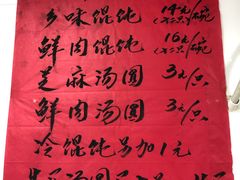 乡味馄饨 14元/碗(七只)
鲜肉馄饨 16元/碗(七只)
芝麻汤圆 3元/只
鲜肉汤圆 3元/只
冷馄饨另加1元